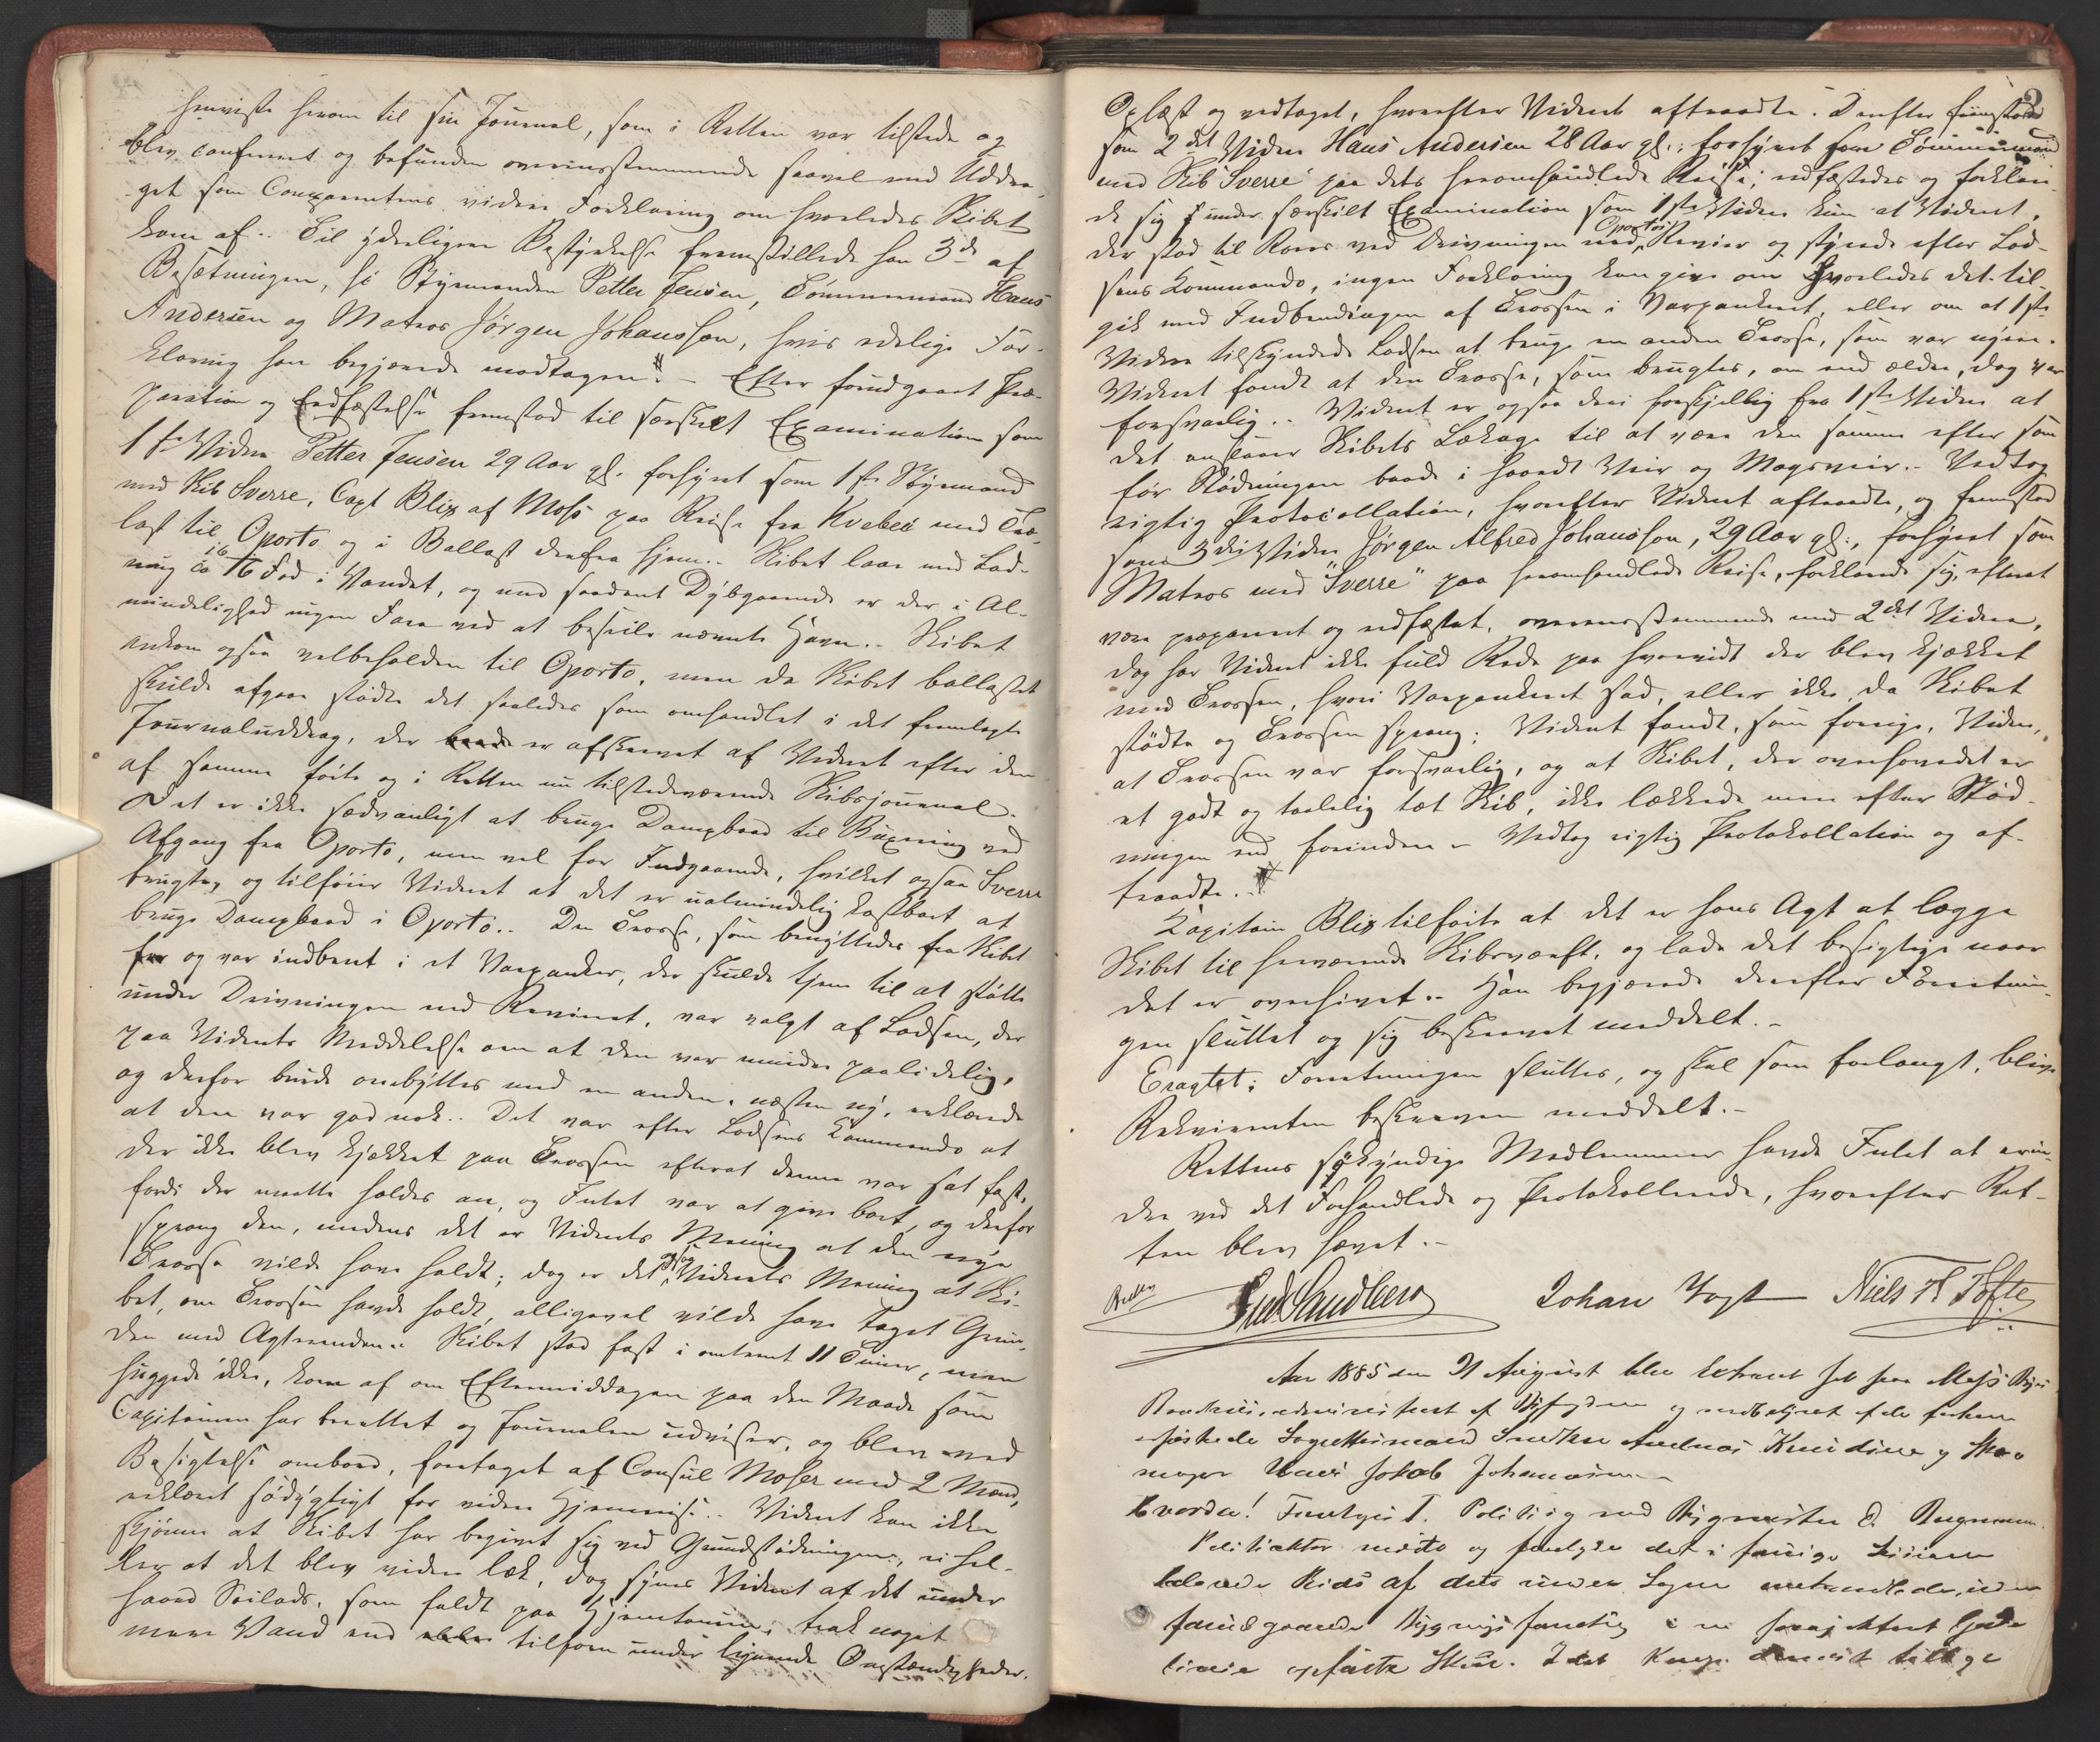 henviste herom til sin Journal, som i Retten var tilstede og
blev confereret og befunden overensstemmende saavel med Uddra-
get som Comparentens videre Forklaring om hvorledes Skibet
kom af.. Til yderligere Bestyrkelse fremstillede han 3de af
Besætningen, se Styrmanden Petter Jensen, Tømmermand Hans
Andersen og Matros Jörgen Johansson, hvis edelige For-
klaring han begjærede modtagen. – Efter foregaaet Præ-
paration og Eedfæstelse fremstod til særskilt Examination som
1ste Vidne Petter Jensen 29 Aar gl. forhyret som 1ste Styrmand
med Skib Sverre, Capt Blix af Moss paa Reise fra Kvebec med Træ-
last til Oporto og i Ballast derfra hjem.. Skibet laae med Lad-
ning ca 16 Fod i Vandet, og med saadant Dybgaaende er der i Al-
mindelighed ingen Fare ved at beseile nævnte Havn.. Skibet
ankom ogsaa velbeholden til Oporto, men da Skibet ballastet
skulde afgaae stödte det saaledes som omhandlet i det fremlagte
Journaluddrag, der er afskrevet af Vidnet efter den
af samme förte og i Retten nu tilstedeværende Skibsjournal.
Det er ikke sædvanligt at bruge Dampbaad til Buxering ved
Afgang fra Oporto, men vel for Indgaaende, hvilket ogsaa Sverre
brugte, og tilföier Vidnet at det er ualmindelig kostbart at
bruge Dampbaad i Oporto.. Den Trosse, som benyttedes fra Skibet
og var indbent i et Varpanker, der skulde tjene til at støtte
under Drivningen ned Revieret, var valgt af Lodsen, der
paa Vidnets Meddelelse om at den var mindre paalidelig,
og derfor burde ombyttes med en anden, næsten ny, erklærede
at den var god nok.. Det var efter Lodsens Kommando at
der ikke blev kjækket paa Trossen efterat denne var sat fast,
fordi der maatte holdes an, og Intet var at give bort, og derfor
sprang den, medens det er Vidnets Mening at den nye
Trosse vilde have holdt; dog er det ogsaa Vidnets Mening at Ski-
bet, om Trossen havde holdt, alligevel vilde have taget Grun-
den med Agterenden.. Skibet stod fast i omtrent 11 Timer, men
huggede ikke, kom af om Eftermiddagen paa den Maade som
Capitainen har berettet og Journalen udviser, og blev ved
Besigtelse ombord, foretaget af Consul Moser med 2 Mænd,
erklæret södygtigt for videre Hjemreise.. Vidnet kan ikke
skjönne at Skibet har begivet sig ved Grundstödningen, ei hel-
ler at det blev videre læk, dog synes Vidnet at det under
haard Seilads, som faldt paa Hjemturen, trak noget
mere Vand end tilforn under lignende Omstændigheder.
2
Oplæst og vedtaget, hvorefter Vidnet aftraadte. Derefter fremstod
som 2det Vidne Hans Andersen 28 Aar gl., forhyret som Tömmermand
med Skib "Sverre" paa dets heromhandlede Reise; edfæstedes og forklare-
de sig under særskilt Examination som 1ste Vidne kun at Vidnet,
der stod til Rors ved Drivningen ned Oportos Revier og styrede efter Lod-
sens Kommando, ingen Forklaring kan give om hvorledes det til-
gik med Indbendingen af Trossen i Varpankeret, eller om at 1ste
Vidne tilskyndede Lodsen at bruge en anden Trosse, som var nyere.
Vidnet fandt at den Trosse, som brugtes, om end ældre, dog var
forsvarlig.. Vidnet er ogsaa deri forskjellig fra 1ste Vidne at
det anslaaer Skibets Lækage til at være den samme efter som
för Stödningen baade i haardt Veir og Magsveir.. Vedtog
rigtig Protocollation, hvorefter Vidnet aftraadte, og fremstod
som 3die Vidne Jörgen Alfred Johansson, 29 Aar gl., forhyret som
Matros med "Sverre" paa heromhandlede Reise, forklarede sig, efterat
være præpareret og edfæstet, overensstemmende med 2det Vidne,
dog har Vidnet ikke fuld Rede paa hvorvidt der blev kjækket
med Trossen, hvori Varpankeret stod, eller ikke, da Skibet
stödte og Trossen sprang; Vidnet fandt, som forrige Vidne,
at Trossen var forsvarlig, og at Skibet, der overhovedet er
et godt og taalelig tæt Skib, ikke lækkede mere efter Stöd-
ningen end forinden – Vedtog rigtig Protokollation og af-
traadte. –
Kapitain Blix tilföiede at det er hans Agt at lægge
Skibet til herværende Skibsværft, og lade det besigtige naar
det er overhivet.. Han begjærede derefter Forretnin-
gen sluttet og sig beskrevet meddelt. –
Eragtet: Forretningen sluttes, og skal som forlangt, blive
Rekvirenten beskreven meddelt. –
Rettens sökyndige Medlemmer havde Intet at erin-
dre ved det Forhandlede og Protokollerede, hvorefter Ret-
ten blev hævet. –
Sandberg Johan Vogt Niels A Tofte
Aar 1885 den 21 August blev Extraret sat paa Moss By-
administreret af Byfogden og medbetjent af de
Andreas Knudsen og Sko-
mager Hans Jakob Johannesen
Hvorda! Foretoges T. Politisag mod Bygmester
Politiaktor mødte og fremlagde det i forrige
af dets
Bygnings
opførte Skur.